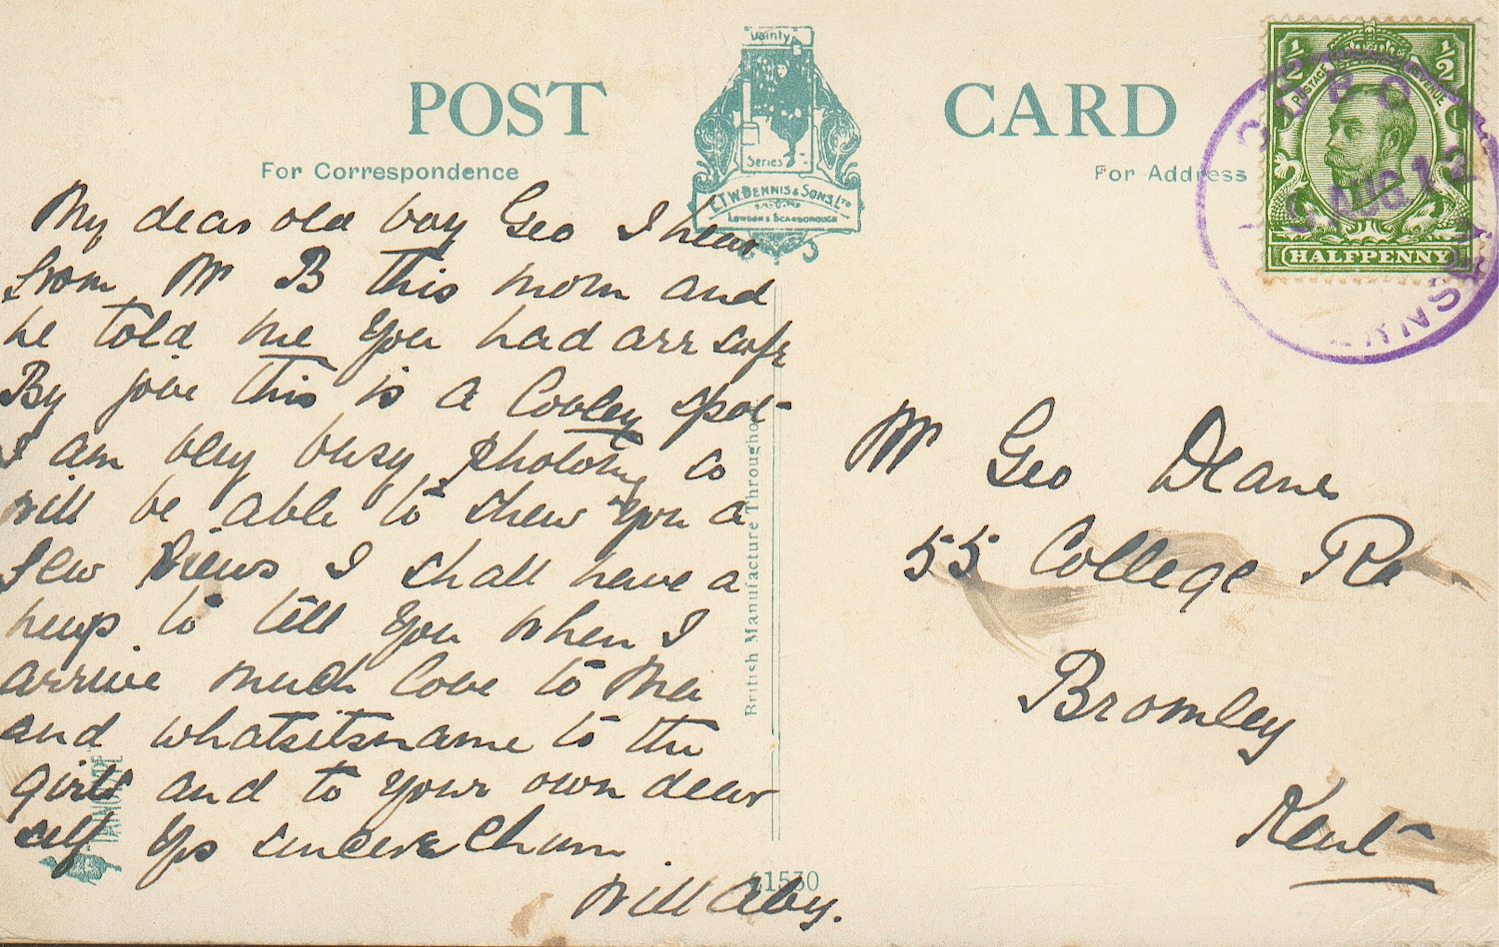 POST CARD
Dainty
Series
E.T.W. DENNIS & SONS, LTD
LONDON & SCARBOROUGH
For Correspondence
For Address
½ ½
POSTAGE REVENUE
HALFPENNY
AUG 12
My dear old boy Geo I hear
from Mr B this morn and
he told me you had arr safe
By jove this is a lovley spot
I am very busy photoing so
will be able to shew you a
few views I shall have a
heap to tell you when I
arrive much love to Ma
and whatsitsname to the
girls and to your own dear
self Yrs sincere Chum
Will Aby.
Mr Geo Deane
55 College Rd
Bromley
Kent
British Manufacture Throughout
61530